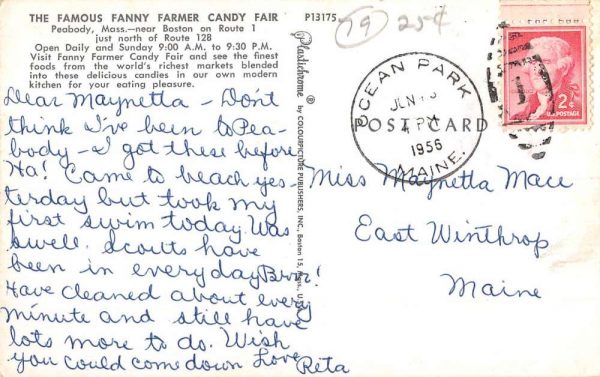 THE FAMOUS FANNY FARMER CANDY FAIR
Peabody, Mass.—near Boston on Route 1
just north of Route 128
Open Daily and Sunday 9:00 A.M. to 9:30 P.M.
Visit Fanny Farmer Candy Fair and see the finest
foods from the world's richest markets blended
into these delicious candies in our own modern
kitchen for your eating pleasure.
P13175
19 25¢
Dear Maynetta – Don't
think I've been to Pea-
body – I got these before
Ha! Came to beach yes-
terday but took my
first swim today. Was
swell. Scouts have
been in everyday Brrr!
Have cleaned about every
minute and still have
lots more to do. Wish
you could come down Love
Reta
Plastichrome ®
by COLOURPICTURE PUBLISHERS, INC., Boston 15, Mass., U.
OCEAN PARK
JUN
PM
1956
MAINE.
POST CARD
2¢
U.S. POSTAGE
Miss Maynetta Mace
East Winthrop
Maine